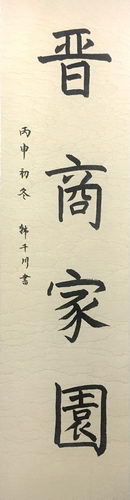 晋商家園
丙申初冬 韩千川書